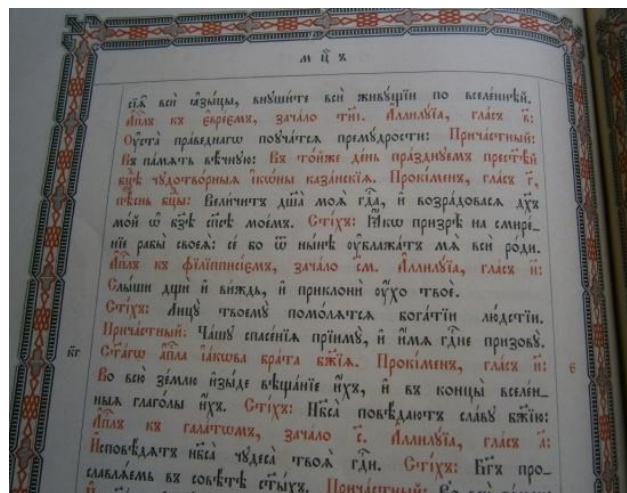 м҃цъ
сїѧ̑ вси̑ ꙗ҆зы́цы, внꙋши́те всѝ живꙋ́щїи по вселе́ннѣй.
А҆п҃лъ къ є҆вре́ємъ, зача́ло т҃ні. А҆ллилꙋ́їа, гла́съ в҃:
Оу҆ста̀ првⷣнагѡ поꙋча́тсѧ премꙋ́дрости: Прича́стный:
Въ па́мѧть вѣ́чнꙋю: Въ то́йже де́нь пра́зднꙋемъ прест҃ѣ́й
бц҃ѣ чꙋдотво́рныѧ і҆кѡ́ны каза́нскїѧ. Прокі́менъ, гла́съ г҃,
пѣ́снь бц҃ы: Вели́читъ дш҃а̀ моѧ̀ гдⷭ҇а, и҆ возра́довасѧ дх҃ъ
мо́й ѡ҆ бз҃ѣ сп҃сѣ мое́мъ. Сті́хъ: Ꙗ҆́кѡ призрѣ̀ на смире́-
нїе рабы̀ своеѧ̀: се́ бо ѿ ны́нѣ оу҆блажа́тъ мѧ̀ всѝ ро́ди.
А҆п҃лъ къ фїлїпписі́ємъ, зача́ло с҃м. А҆ллилꙋ́їа, гла́съ и҃:
Слы́ши дщѝ и҆ ви́ждь, и҆ приклонѝ оу҆́хо твоѐ.
Сті́хъ: Лицꙋ̀ твоемꙋ̀ помо́лѧтсѧ бога́тїи лю́дстїи.
Прича́стный: Ча́шꙋ спасе́нїѧ прїимꙋ̀, и҆ и҆́мѧ гдⷭ҇не призовꙋ̀.
к҃г Ст҃а́гѡ а҆п҃ла і҆а́кѡва бра́та бж҃їѧ. Прокі́менъ, гла́съ и҃: 6
Во всю̀ зе́млю и҆зы́де вѣща́нїе и҆́хъ, и҆ въ концы̀ вселе́н-
ныѧ глаго́лы и҆́хъ. Сті́хъ: Нб҃са̀ повѣ́даютъ сла́вꙋ бж҃їю:
А҆п҃лъ къ гала́тѡмъ, зача́ло с҃. А҆ллилꙋ́їа, гла́съ а҃:
И҆сповѣ́дѧтъ нб҃са̀ чꙋдеса̀ твоѧ̑ гдⷭ҇и. Сті́хъ: Бг҃ъ про-
славлѧ́емь въ совѣ́тѣ ст҃ы́хъ. Прича́стный: Во всю̀